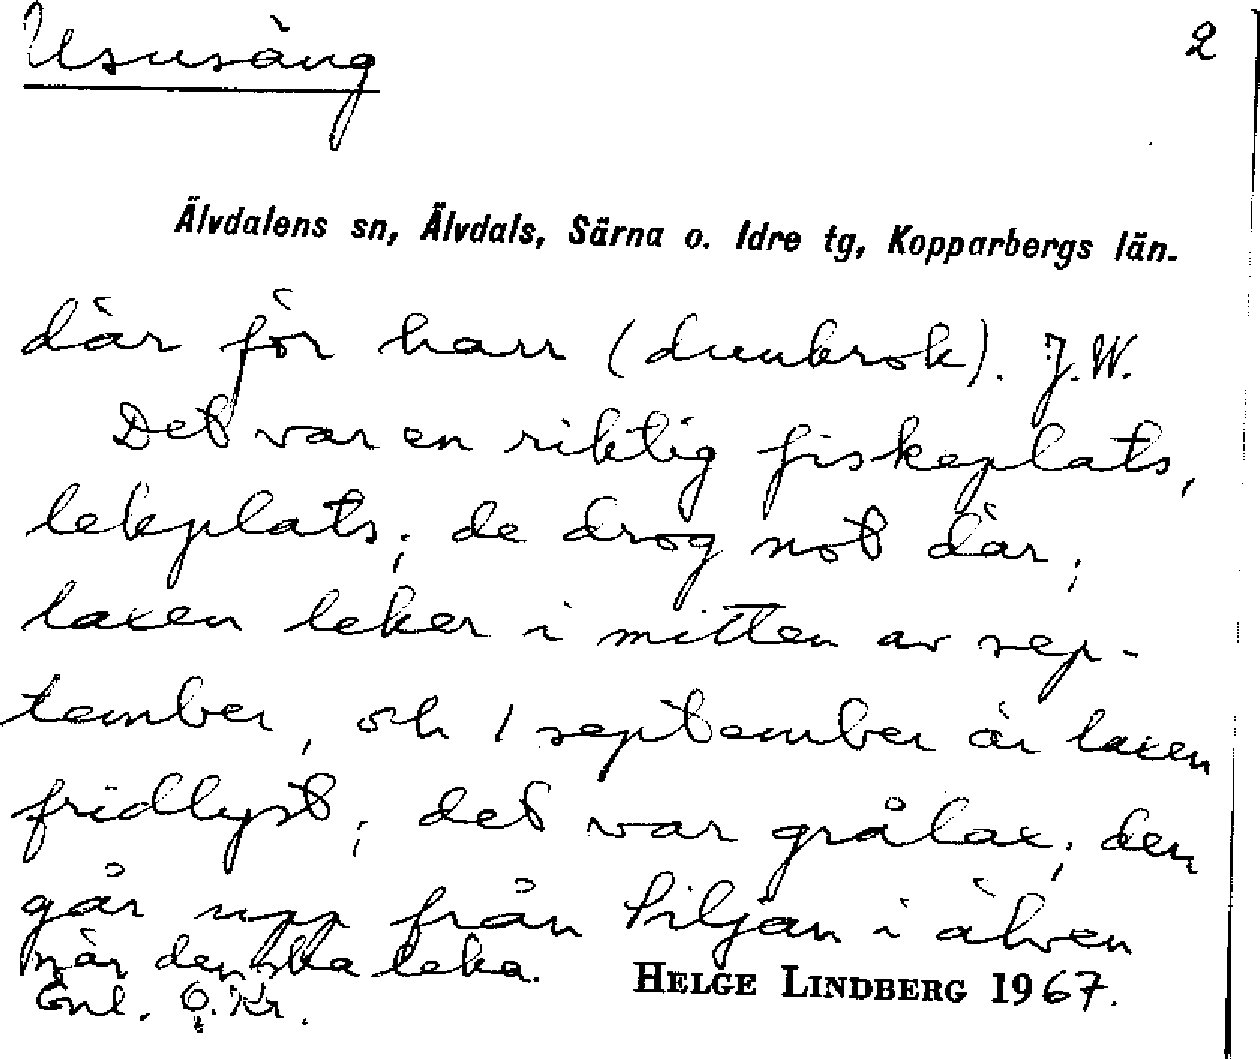 Ususäng
2
Älvdalens sn, Älvdals, Särna o. Idre tg, Kopparbergs län.
där för harr (dunkrok). J.W.
Det var en riktig fiskeplats,
lekplats; de drog not där;
laxen leker i mitten av sep-
tember, och 1 september är laxen
fridlyst; det var grålax; den
går upp från Siljan i älven
när den ska leka.
Enl. O. Kr.
HELGE LINDBERG 1967.